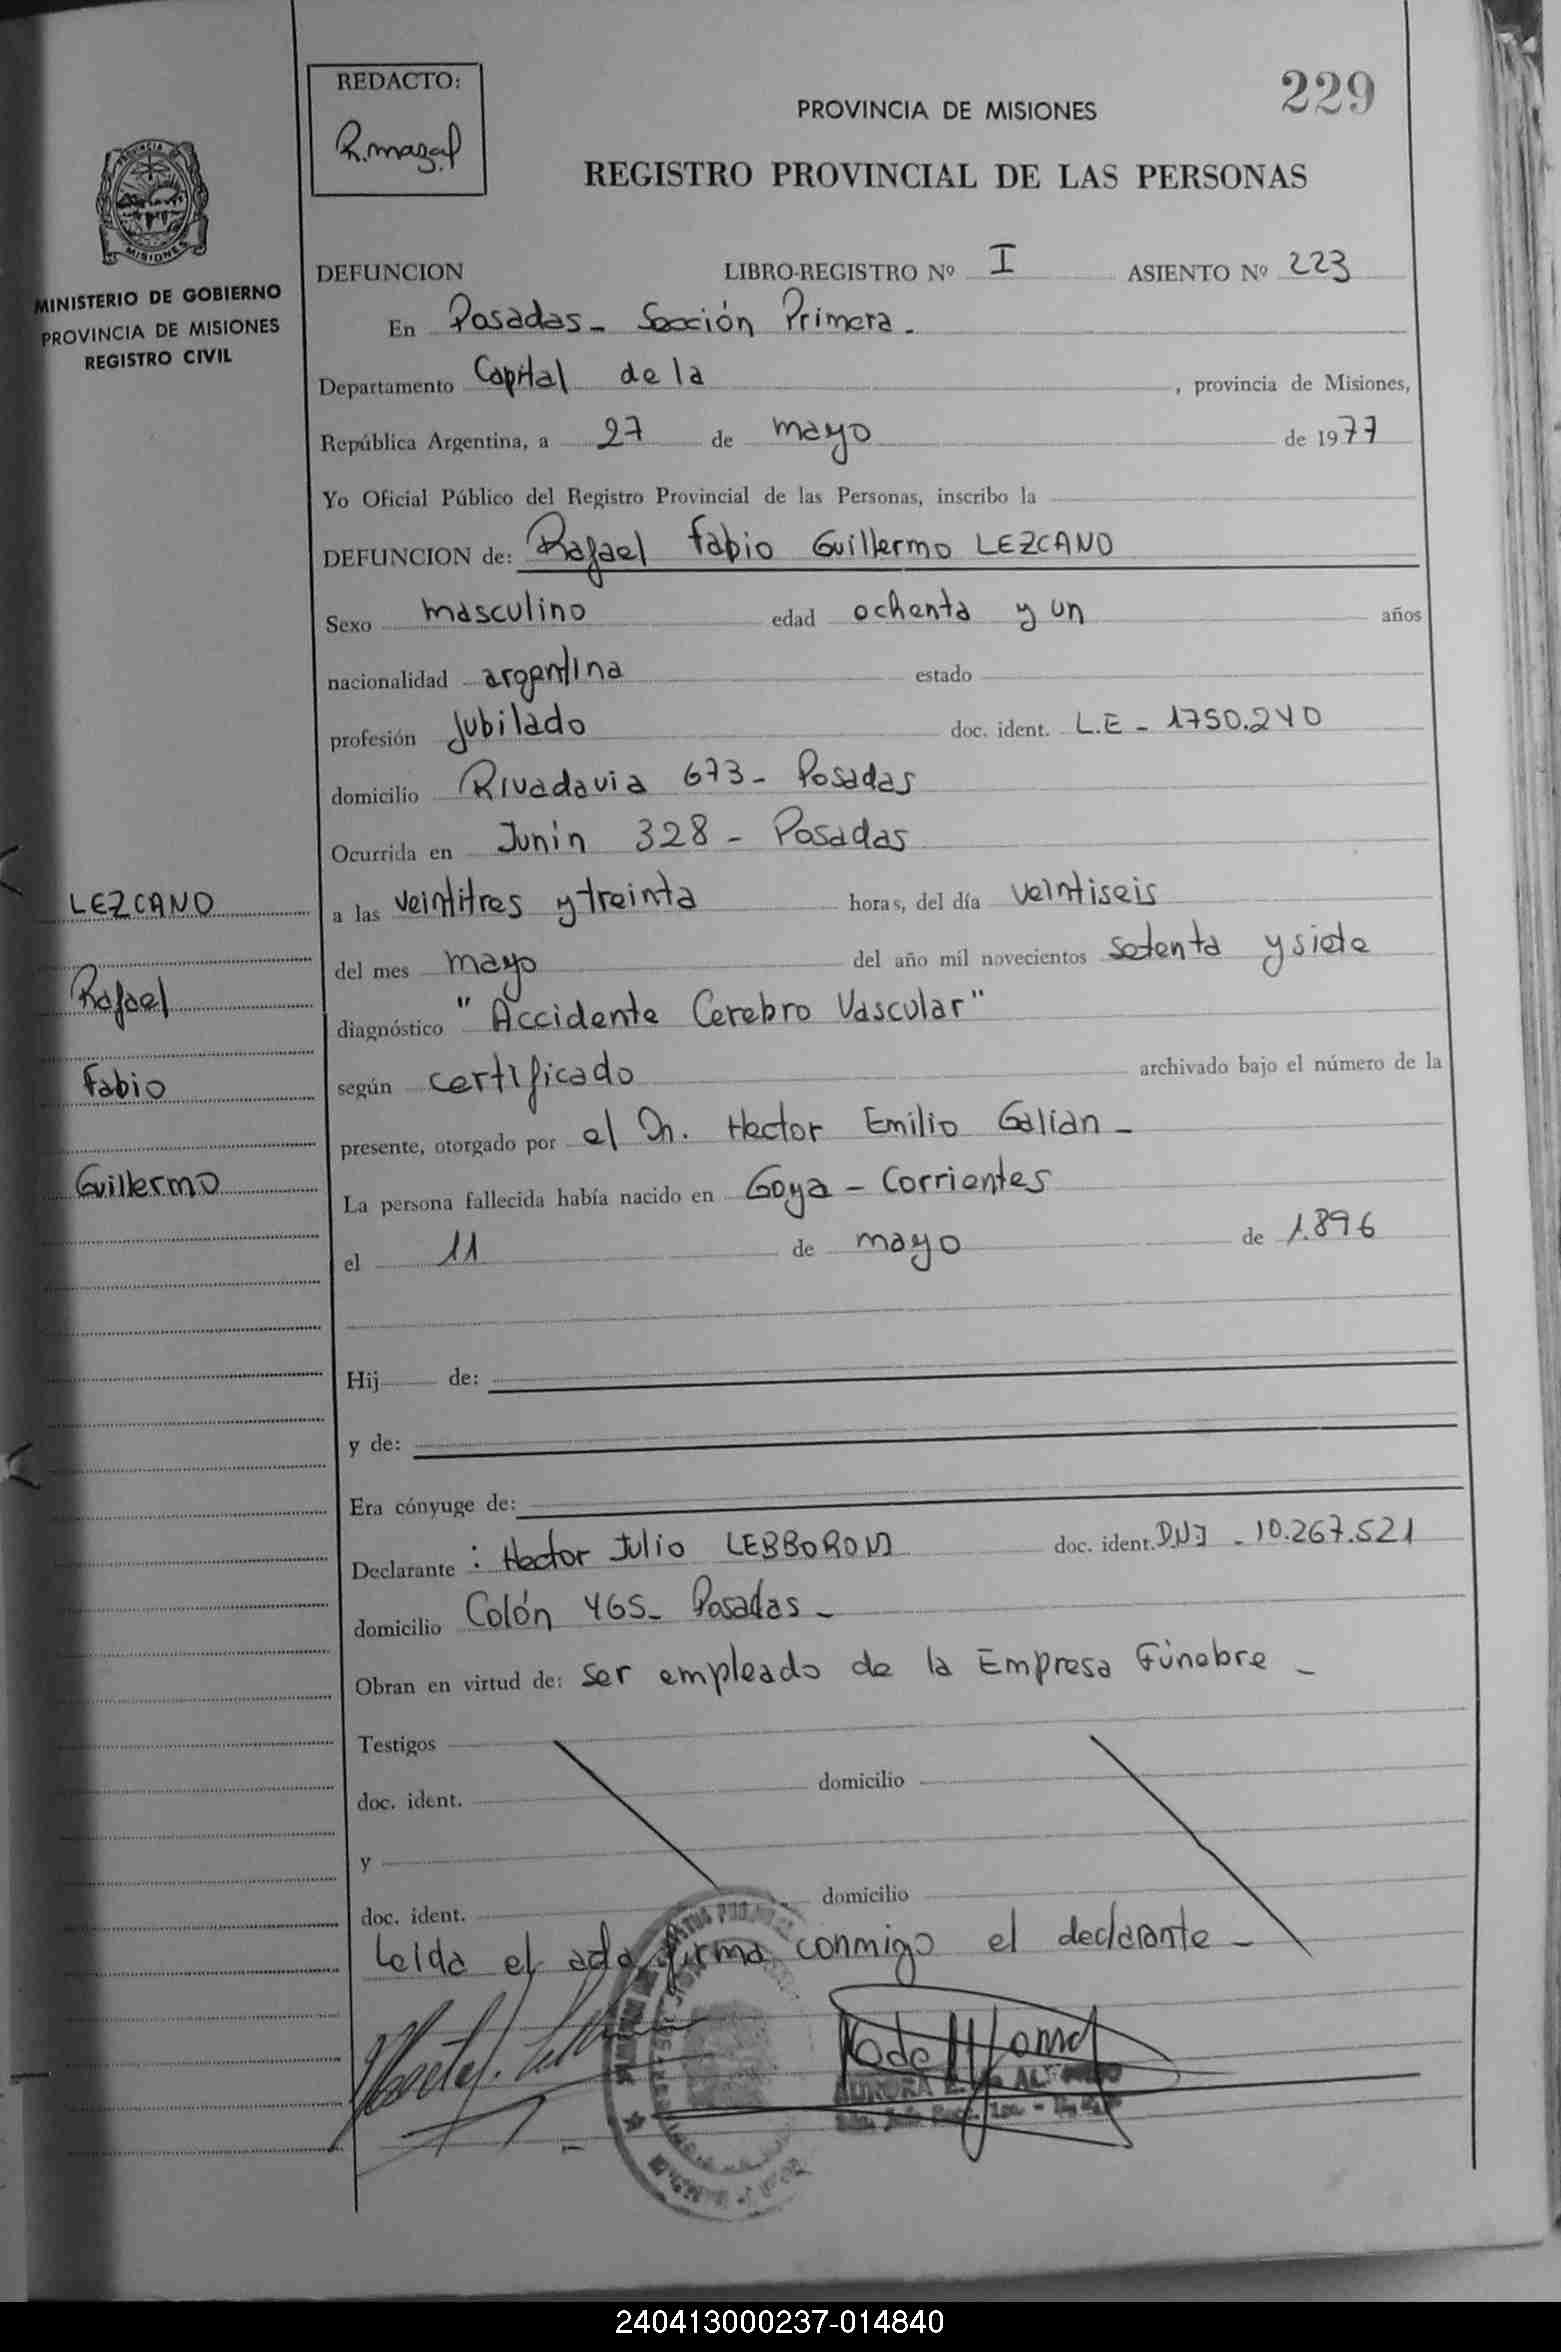 229
REDACTO:
R. mazal
PROVINCIA DE MISIONES
REGISTRO PROVINCIAL DE LAS PERSONAS
PROVINCIA DE
MISIONES
MINISTERIO DE GOBIERNO
PROVINCIA DE MISIONES
REGISTRO CIVIL
DEFUNCION LIBRO-REGISTRO Nº I ASIENTO Nº 223
En Posadas - Sección Primera.
Departamento Capital de la , provincia de Misiones,
República Argentina, a 27 de mayo de 1977
Yo Oficial Público del Registro Provincial de las Personas, inscribo la
DEFUNCION de: Rafael Fabio Guillermo LEZCANO
Sexo masculino edad ochenta y un años
nacionalidad argentina estado
profesión Jubilado doc. ident. L.E - 1750.240
domicilio Rivadavia 673 - Posadas
Ocurrida en Junin 328 - Posadas
LEZCANO
Rafael
Fabio
Guillermo
a las veintitres y treinta horas, del día veintiseis
del mes mayo del año mil novecientos setenta y siete
diagnóstico "Accidente Cerebro Vascular"
según certificado archivado bajo el número de la
presente, otorgado por el Dr. Hector Emilio Galian -
La persona fallecida había nacido en Goya - Corrientes
el 11 de mayo de 1.896
Hij de:
y de:
Era cónyuge de:
Declarante : Hector Julio LEBBORONI doc. ident. DNI - 10.267.521
domicilio Colón 465 - Posadas -
Obran en virtud de: ser empleado de la Empresa Fúnebre -
Testigos
doc. ident. domicilio
y
doc. ident. domicilio
Leida el acta firma conmigo el declarante -
AURORA
240413000237-014840